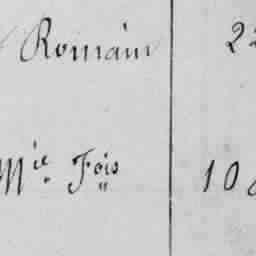 Romain 22
Mie Fois 10